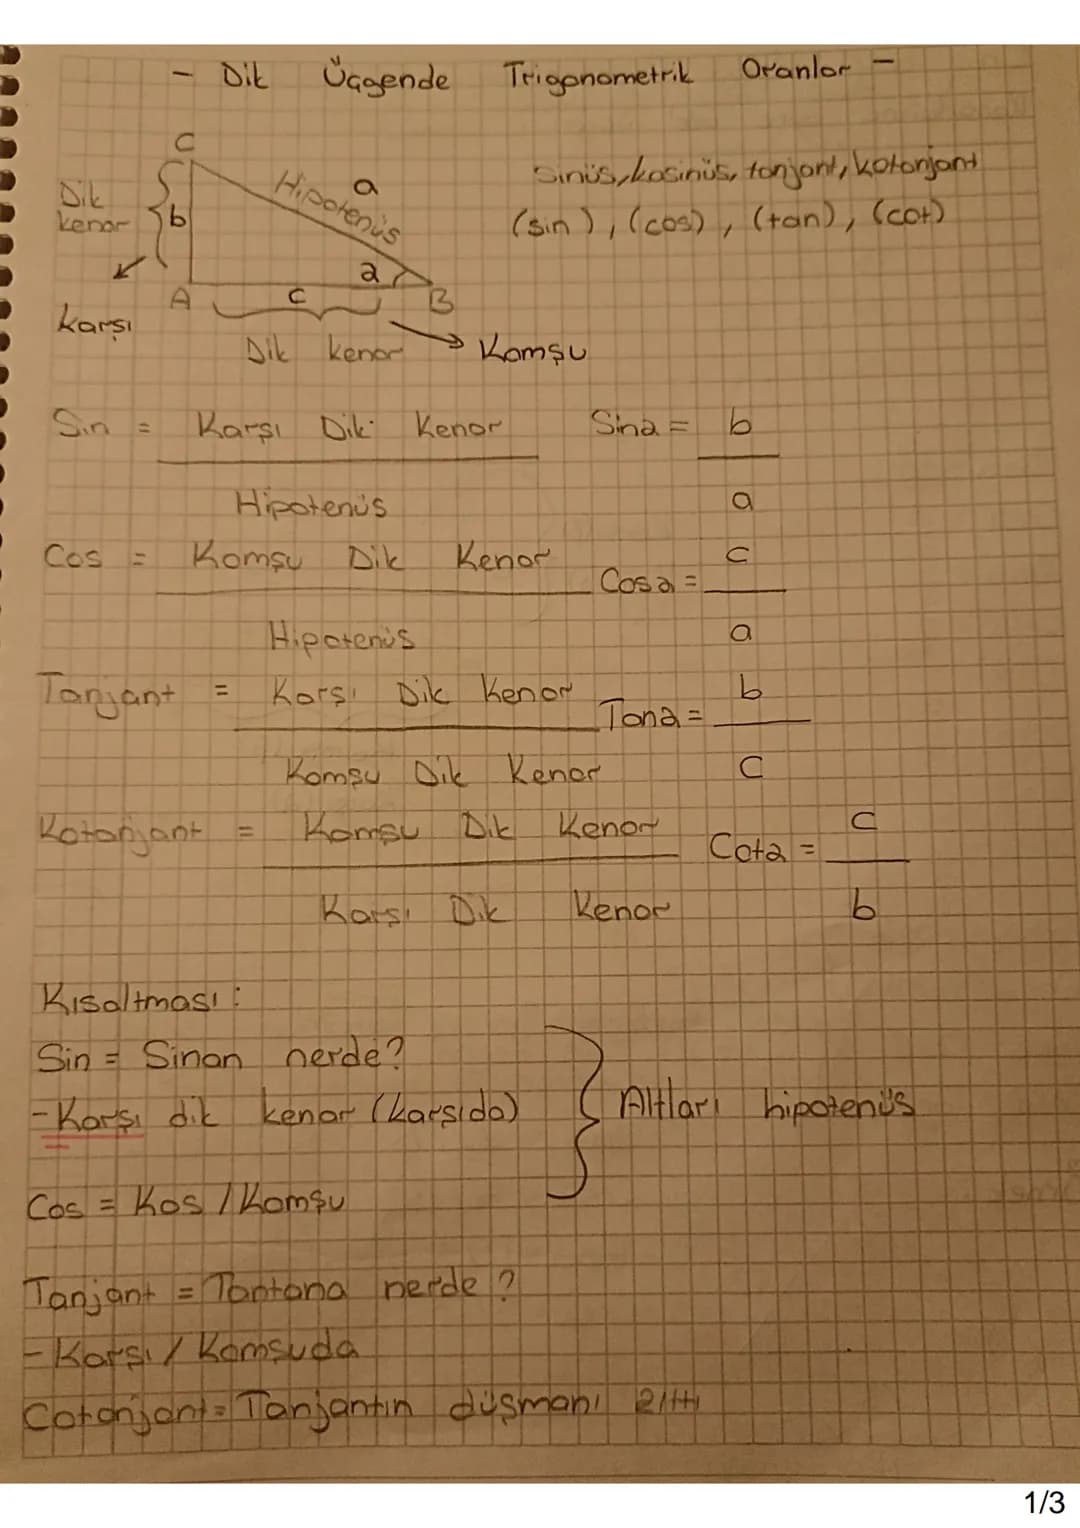 - Dik Üçgende Trigonometrik Oranlar -
C
Dik kenar
b
Hipotenüs
a
a
A
c
B
karşı
Dik kenar
Komşu
Sinüs, kosinüs, tanjant, kotanjant
(sin), (cos), (tan), (cot)
Sin = Karşı Dik Kenar
Hipotenüs
Sina = b
a
Cos = Komşu Dik Kenar
Hipotenüs
Cosa = c
a
Tanjant = Karşı Dik Kenar
Komşu Dik Kenar
Tana = b
c
Kotanjant = Komşu Dik Kenar
Karşı Dik Kenar
Cota = c
b
Kısaltması :
Sin = Sinan nerde?
- Karşı dik kenar (karşıda)
Altları hipotenüs
Cos = Kos / Komşu
Tanjant = Tantana nerde ?
- Karşı / Komşuda
Cotanjant = Tanjantın düşmanı zıttı
1/3